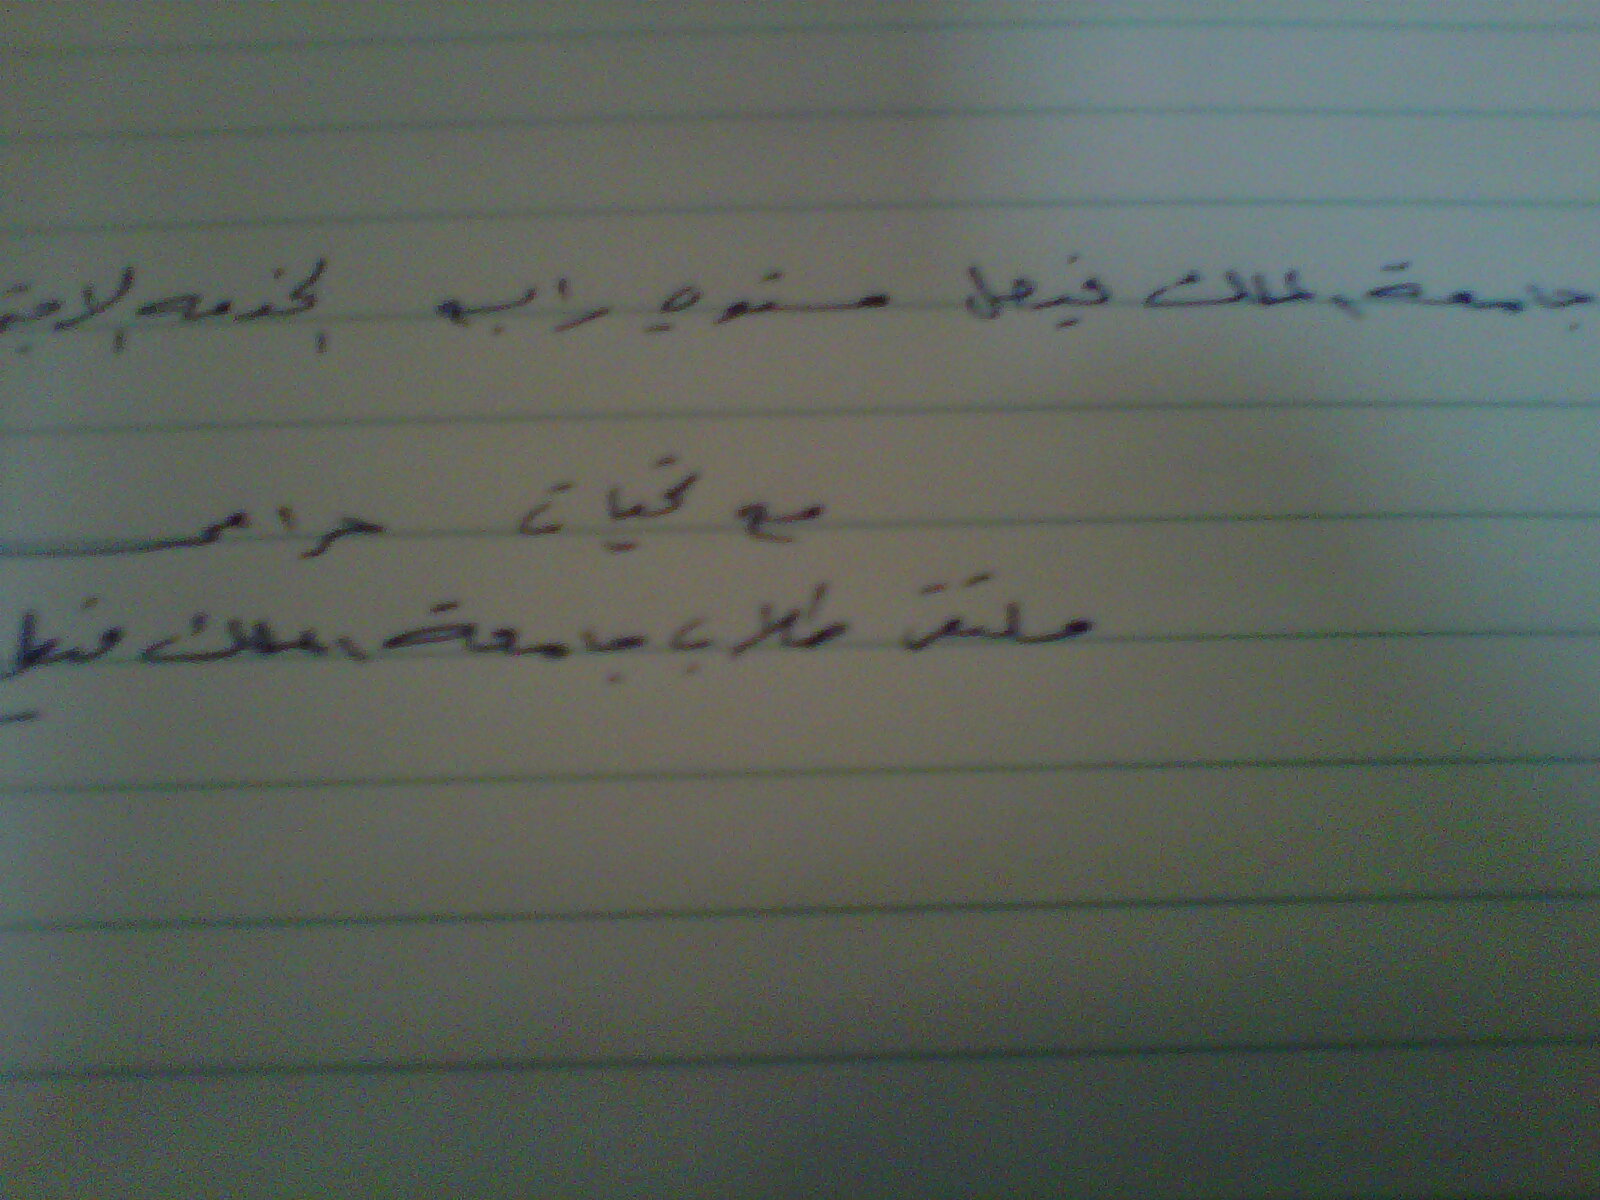 جامعة الملك فيصل مستوي رابع الخدمه الاجتـ
مع تحيات
ملتقى طلاب جامعة الملك فيصل